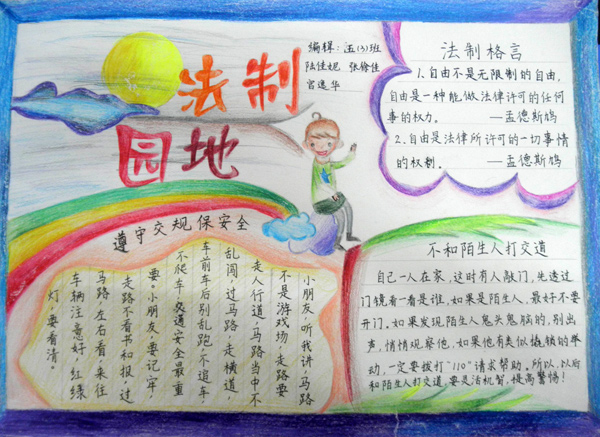 法制
园地
编辑:五(3)班
陆佳妮 张徐佳
宫逸华
法制格言
1.自由不是无限制的自由,
自由是一种能做法律许可的任何
事的权力。 —孟德斯鸠
2.自由是法律所许可的一切事情
的权利。 —孟德斯鸠
遵守交规保安全
小朋友,听我讲,马路
不是游戏场,走路要
走人行道,马路当中不
乱闯,过马路,走横道
车前车后别乱跑,不追车
不爬车 交通安全最重
要。小朋友,要记牢,
走路不看书和报,过
马路左右看,来往
车辆注意好,红绿
灯,要看清。
不和陌生人打交道
自己一人在家,这时有人敲门,先透过
门镜看一看是谁,如果是陌生人,最好不要
开门。如果发现陌生人鬼头鬼脑的,别出
声,悄悄观察他,如果他有类似撬锁的举
动,一定要拨打"110"请求帮助。所以,以后
和陌生人打交道,要灵活机智,提高警惕!